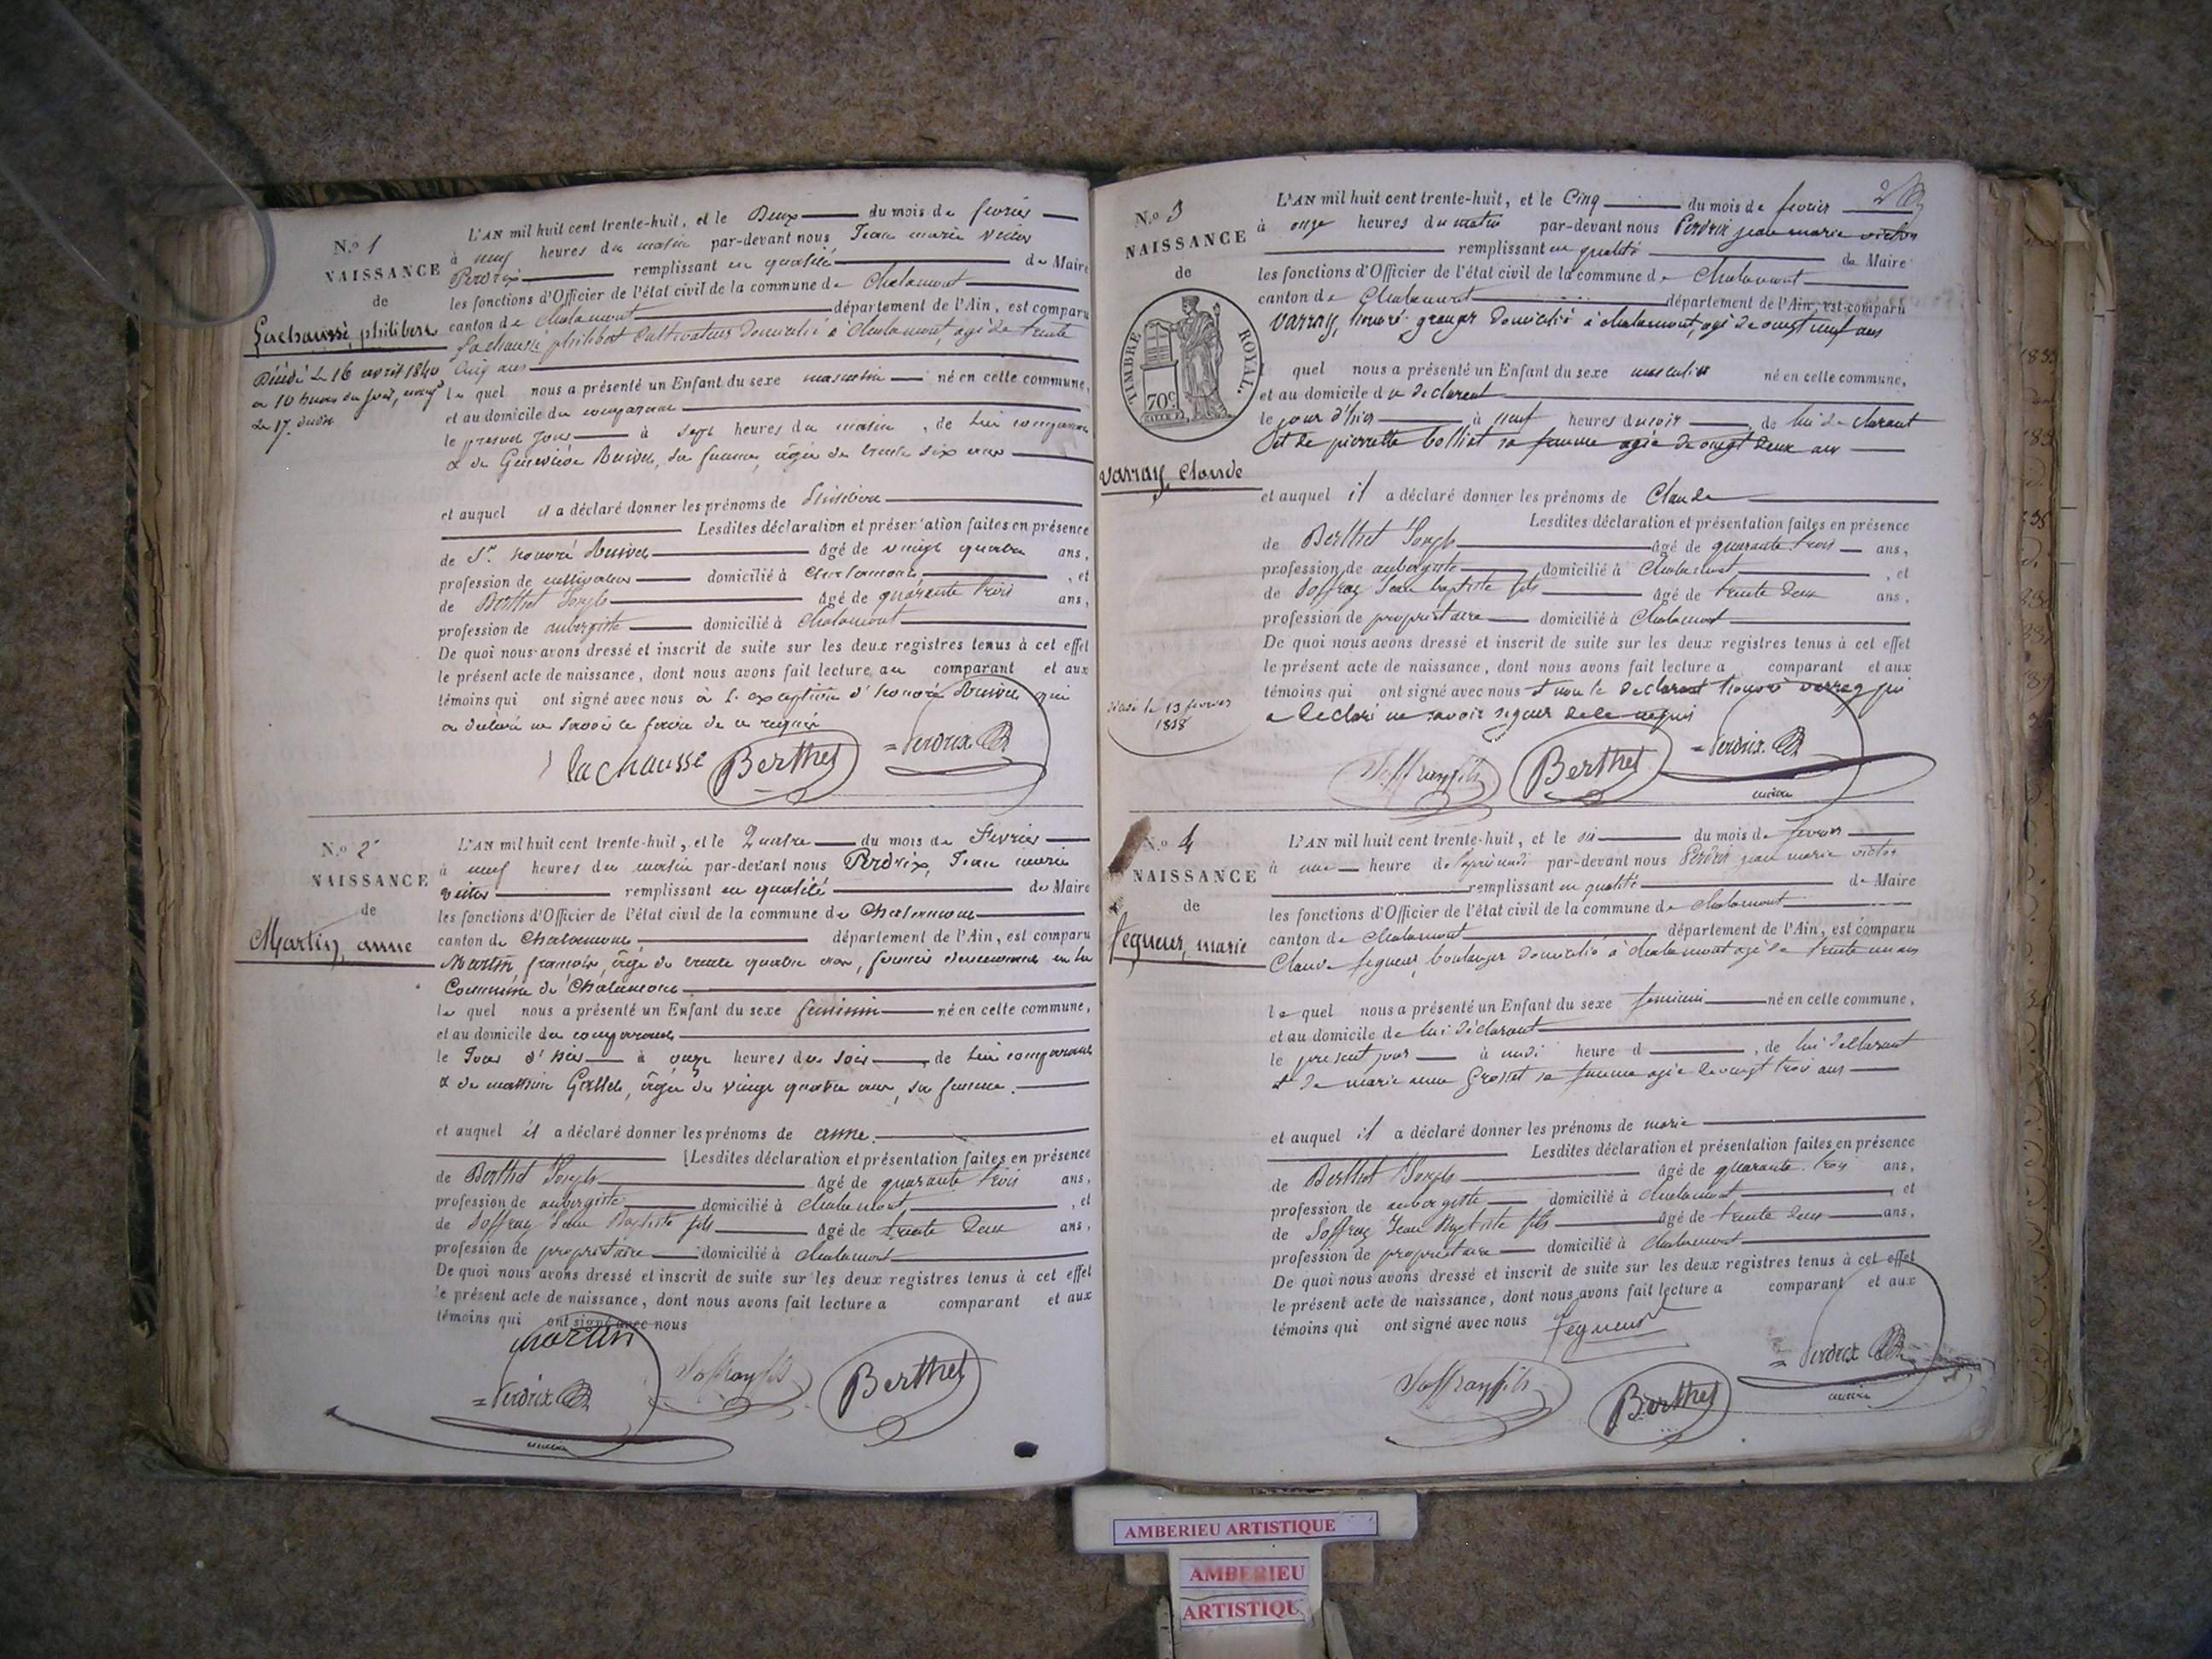 N.o 1
NAISSANCE
de
Lachausse, philibert
Décédé le 16 avril 1840
a 10 heures du
le 17. dudit
L'AN mil huit cent trente-huit, et le Deux du mois de fevrier
à neuf heures du matin par-devant nous Jean marie Victor
Perdrix remplissant en qualité de Maire
les fonctions d'Officier de l'état civil de la commune de Chalamont
canton de Chalamont département de l'Ain, est comparu
Lachausse philibert Cultivateur Domicilié à Chalamont, agé de trente
Cinq ans
le quel nous a présenté un Enfant du sexe masculin né en cette commune,
et au domicile du comparant
le présent jour à sept heures du matin, de lui comparant
& de Geneviève Buivon, sa femme, âgée de trente six ans
et auquel il a déclaré donner les prénoms de philibert
Lesdites déclaration et présentation faites en présence
de Sr. honoré âgé de vingt quatre ans,
profession de cultivateur domicilié à Chalamont, et
de Berthet Joseph âgé de quarante trois ans,
profession de aubergiste domicilié à Chalamont
De quoi nous avons dressé et inscrit de suite sur les deux registres tenus à cet effet
le présent acte de naissance, dont nous avons fait lecture au comparant et aux
témoins qui ont signé avec nous à l'exception d'honoré qui
a déclaré ne savoir le faire de ce requis
lachausse Berthet Perdrix
N.o 2
NAISSANCE
de
Martin, anne
L'AN mil huit cent trente-huit, et le Quatre du mois de Fevrier
à neuf heures du matin par-devant nous Perdrix, Jean marie
Victor remplissant en qualité de Maire
les fonctions d'Officier de l'état civil de la commune de Chalamont
canton de Chalamont département de l'Ain, est comparu
Martin, françois, âgé de trente quatre ans, fermier demeurant en la
Commune de Chalamont
le quel nous a présenté un Enfant du sexe feminin né en cette commune,
et au domicile du comparant
le Jour d'hier à onze heures du soir, de lui comparant
& de âgée de vingt quatre ans, sa femme.
et auquel il a déclaré donner les prénoms de anne.
Lesdites déclaration et présentation faites en présence
de Berthet Joseph âgé de quarante trois ans,
profession de aubergiste domicilié à Chalamont, et
de Soffray Jean Baptiste fils âgé de trente deux ans,
profession de propriétaire domicilié à Chalamont
De quoi nous avons dressé et inscrit de suite sur les deux registres tenus à cet effet
le présent acte de naissance, dont nous avons fait lecture a comparant et aux
témoins qui ont signé avec nous
martin
Perdrix Soffray fils Berthet
maire
N.o 3
NAISSANCE
de
TIMBRE ROYAL.
70c
varray, Claude
Décédé le 13 fevrier
1838
2
L'AN mil huit cent trente-huit, et le Cinq du mois de fevrier
à onze heures du matin par-devant nous Perdrix jean marie victor
remplissant en qualité de Maire
les fonctions d'Officier de l'état civil de la commune de Chalamont
canton de Chalamont département de l'Ain, est comparu
varray, honoré granger domicilié à chalamont, agé de vingt neuf ans
quel nous a présenté un Enfant du sexe masculin né en cette commune,
et au domicile du declarant
le jour d'hier à neuf heures du soir, de lui declarant
et de pierrette Colliet sa femme agée de vingt deux ans
et auquel il a déclaré donner les prénoms de Claude
Lesdites déclaration et présentation faites en présence
de Berthet Joseph âgé de quarante trois ans,
profession de aubergiste domicilié à Chalamont, et
de Soffray Jean baptiste fils âgé de trente deux ans,
profession de propriétaire domicilié à Chalamont
De quoi nous avons dressé et inscrit de suite sur les deux registres tenus à cet effet
le présent acte de naissance, dont nous avons fait lecture a comparant et aux
témoins qui ont signé avec nous et non le declarant honoré varray qui
a declaré ne savoir signer de ce requis
Soffray fils Berthet Perdrix
maire
N.o 4
NAISSANCE
de
fegueur, marie
L'AN mil huit cent trente-huit, et le six du mois de fevrier
à une heure de l'après midi par-devant nous Perdrix jean marie victor
remplissant en qualité de Maire
les fonctions d'Officier de l'état civil de la commune de Chalamont
canton de Chalamont département de l'Ain, est comparu
Claude fegueur, boulanger domicilié à chalamont agé de trente un ans
le quel nous a présenté un Enfant du sexe feminin né en cette commune,
et au domicile de lui déclarant
le present jour à midi heure d, de lui declarant
et de marie anne Grosset sa femme agée de vingt trois ans
et auquel il a déclaré donner les prénoms de marie
Lesdites déclaration et présentation faites en présence
de Berthet Joseph âgé de quarante trois ans,
profession de aubergiste domicilié à chalamont, et
de Soffray Jean Baptiste fils âgé de trente deux ans,
profession de propriétaire domicilié à Chalamont
De quoi nous avons dressé et inscrit de suite sur les deux registres tenus à cet effet
le présent acte de naissance, dont nous avons fait lecture a comparant et aux
témoins qui ont signé avec nous fegueur
Soffray fils Berthet Perdrix
maire
AMBERIEU ARTISTIQUE
AMBERIEU
ARTISTIQU